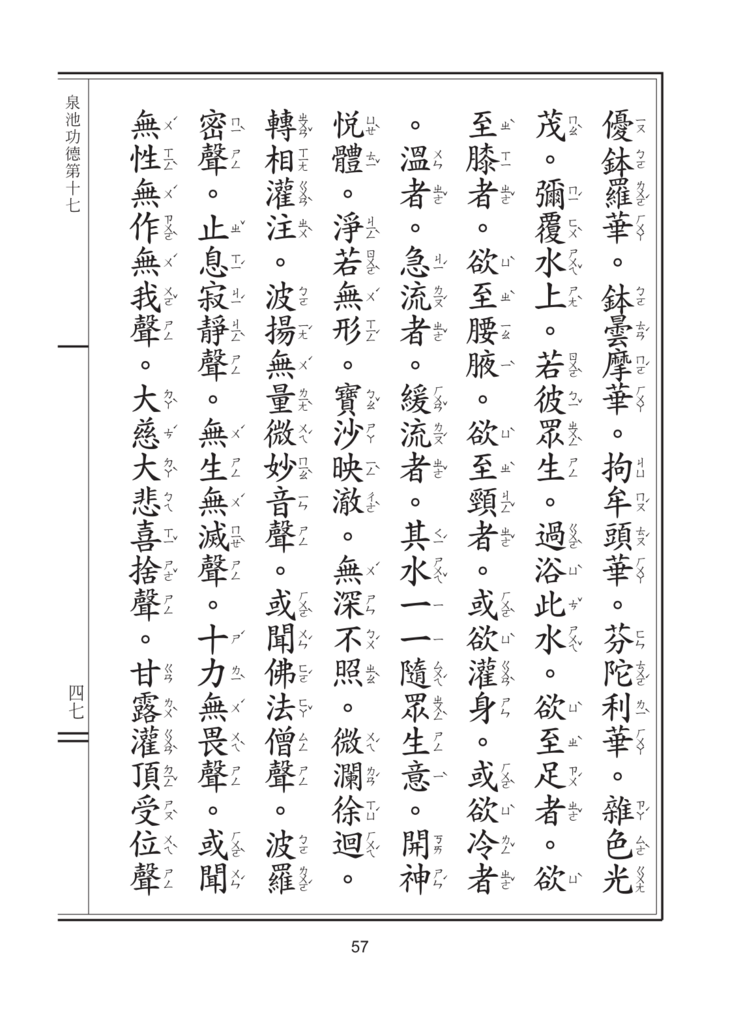 優鉢羅華。鉢曇摩華。拘牟頭華。芬陀利華。雜色光
茂。彌覆水上。若彼眾生。過浴此水。欲至足者。欲
至膝者。欲至腰腋。欲至頸者。或欲灌身。或欲冷者
。溫者。急流者。緩流者。其水一一隨眾生意。開神
悅體。淨若無形。寶沙映澈。無深不照。微瀾徐迴。
轉相灌注。波揚無量微妙音聲。或聞佛法僧聲。波羅
密聲。止息寂靜聲。無生無滅聲。十力無畏聲。或聞
無性無作無我聲。大慈大悲喜捨聲。甘露灌頂受位聲
泉池功德第十七
四七
57